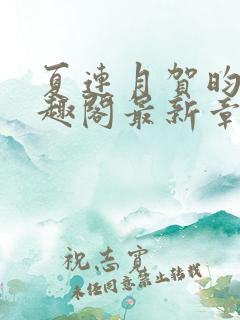 夏连月贺昀
趣阁最新章
祝志宽
未经同意禁止转载